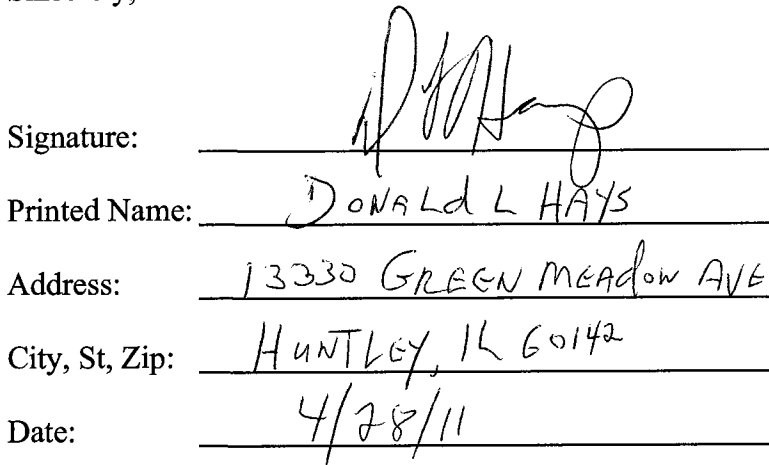 Signature:
Printed Name: DONALd L HAYS
Address: 13330 GREEN MEAdow AVE
City, St, Zip: HUNTLEY, IL 60142
Date: 4/28/11